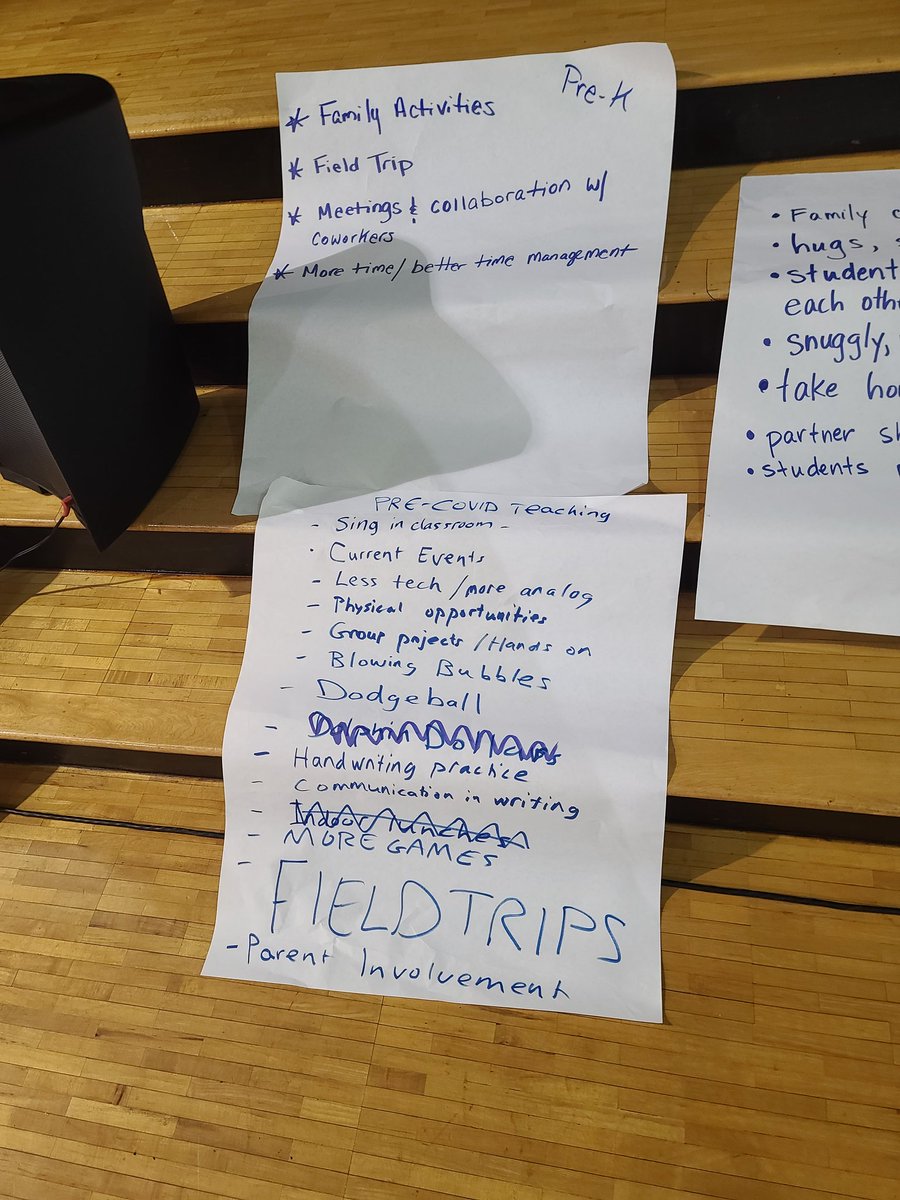 Pre-K
* Family Activities
* Field Trip
* Meetings & collaboration w/
coworkers
* More time/better time management
PRE-COVID Teaching
- Sing in classroom -
· Current Events
- Less tech /more analog
- Physical opportunities
- Group projects /Hands on
- Blowing Bubbles
- Dodgeball
-
- Handwriting practice
- Communication in writing
- Indoor lunches
- MORE GAMES
- FIELD TRIPS
- Parent Involvement
• Family
• hugs,
• student
each
• snuggly,
• take
• partner
• students